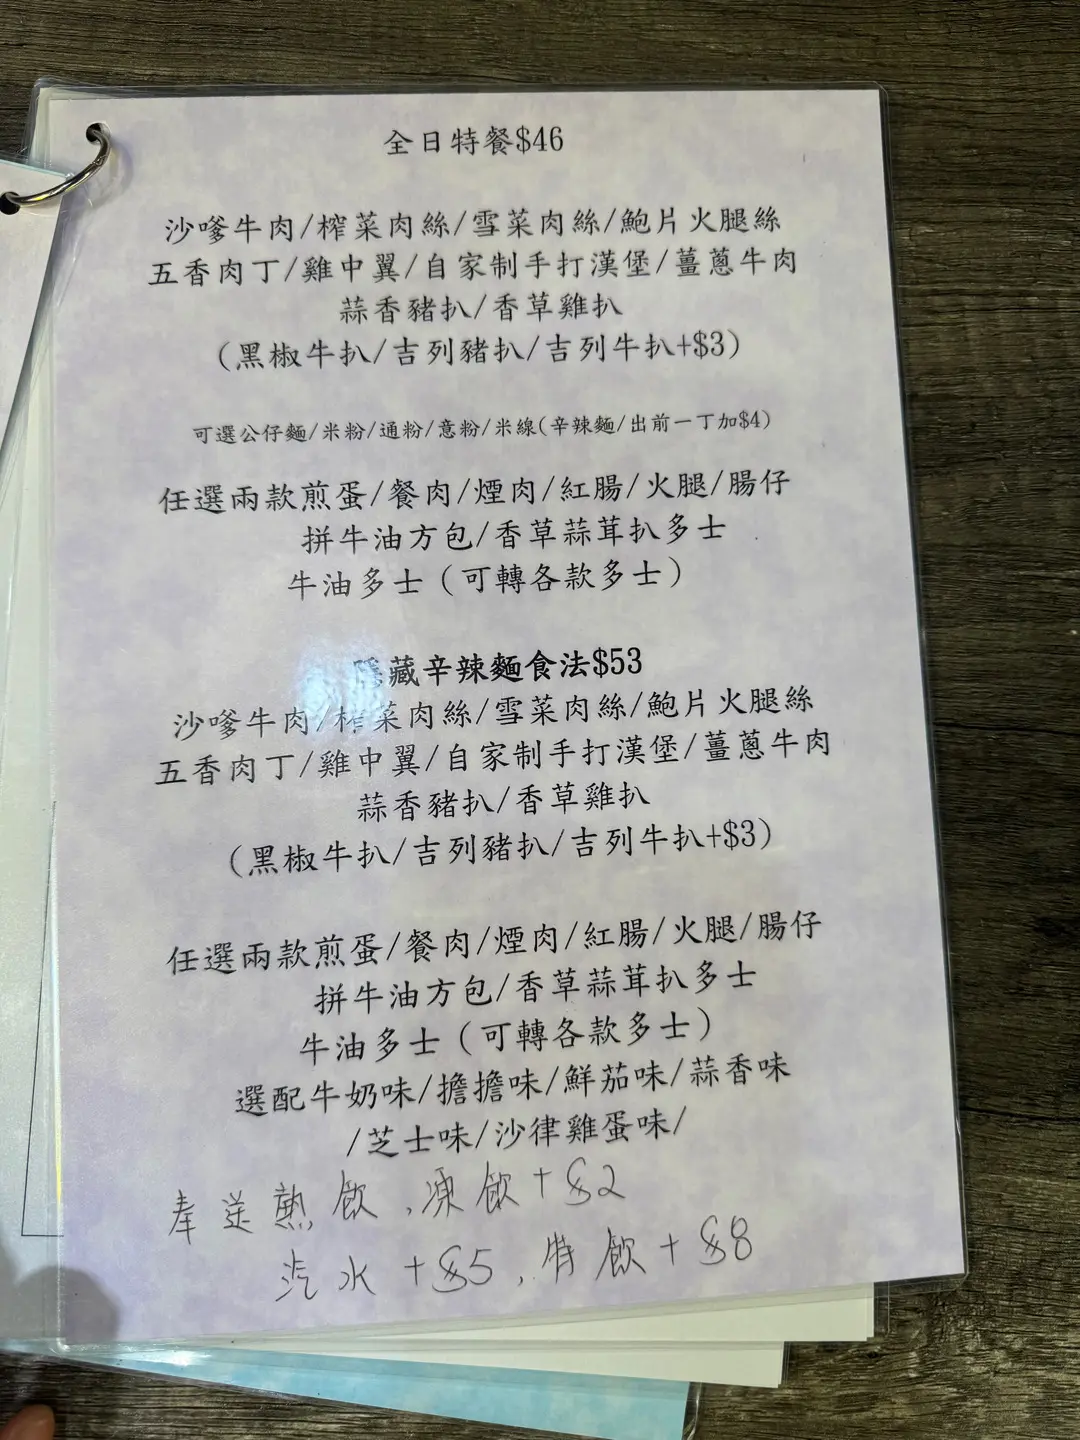 全日特餐$46
沙嗲牛肉/榨菜肉絲/雪菜肉絲/鮑片火腿絲
五香肉丁/雞中翼/自家制手打漢堡/薑蔥牛肉
蒜香豬扒/香草雞扒
(黑椒牛扒/吉列豬扒/吉列牛扒+$3)
可選公仔麵/米粉/通粉/意粉/米線(辛辣麵/出前一丁加$4)
任選兩款煎蛋/餐肉/煙肉/紅腸/火腿/腸仔
拼牛油方包/香草蒜茸扒多士
牛油多士(可轉各款多士)
隱藏辛辣麵食法$53
沙嗲牛肉/榨菜肉絲/雪菜肉絲/鮑片火腿絲
五香肉丁/雞中翼/自家制手打漢堡/薑蔥牛肉
蒜香豬扒/香草雞扒
(黑椒牛扒/吉列豬扒/吉列牛扒+$3)
任選兩款煎蛋/餐肉/煙肉/紅腸/火腿/腸仔
拼牛油方包/香草蒜茸扒多士
牛油多士(可轉各款多士)
選配牛奶味/擔擔味/鮮茄味/蒜香味
/芝士味/沙律雞蛋味/
奉送熱飲,凍飲+$2
汽水+$5,特飲+$8